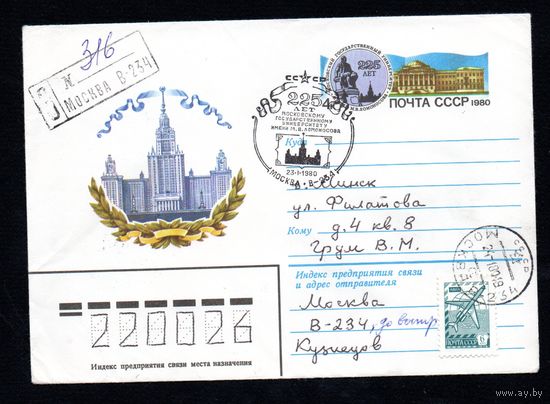 з/б
N
З Москва В-234
МОСКОВСКИЙ ГОСУДАРСТВЕННЫЙ УНИВЕРСИТЕТ
225
ЛЕТ
М.В.ЛОМОНОСОВА
4
ПОЧТА СССР 1980
СССР
225
ЛЕТ
МОСКОВСКОМУ
ГОСУДАРСТВЕННОМУ
УНИВЕРСИТЕТУ
ИМЕНИ М.В.ЛОМОНОСОВА
23-1-1980
МОСКВА В-234
Куда
г. Минск
ул. Филатова
д. 4 кв. 8
Кому
Грум В. М.
Индекс предприятия связи
и адрес отправителя
Москва
В-234, до востр.
Кузнецов
СССР
МОСКВА
ПОЧТА СССР 6
220026
Индекс предприятия связи места назначения
ay.by